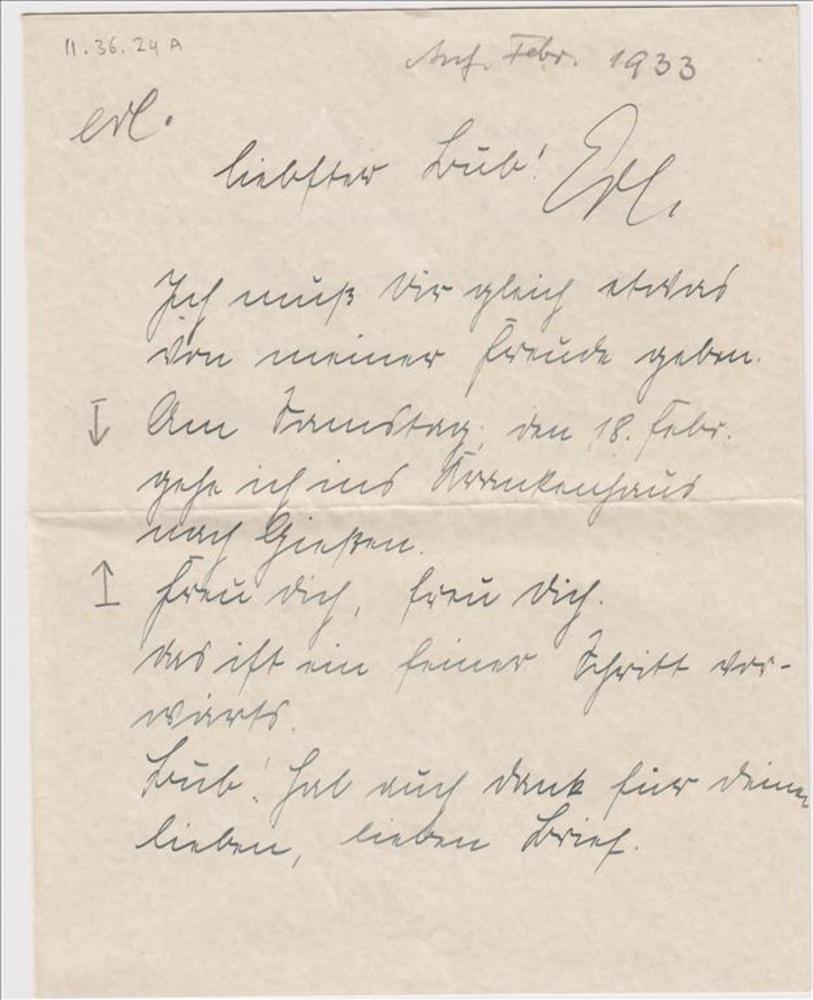 II.36.24 A
Anf. Febr. 1933
erl.
liebster Bub! Erl.
Ich muß Dir gleich etwas
von meiner Freude geben.
Am Samstag, den 18. Febr.
gehe ich ins Krankenhaus
nach Gießen.
Freu dich, freu dich.
das ist ein feiner Schritt vor-
wärts.
Bub! hab auch dank für deinen
lieben, lieben Brief.